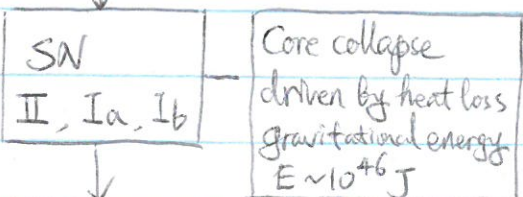 SN
II, Ia, Ib
Core collapse
driven by heat loss
gravitational energy
E ~10⁴⁶ J